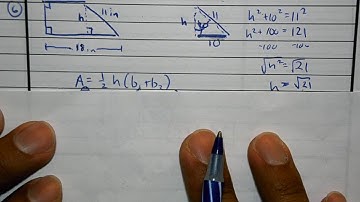 6
h
11 in
18 in
h
11
10
h² + 10² = 11²
h² + 100 = 121
-100 -100
√h² = √21
h = √21
A = ½ h (b₁ + b₂)